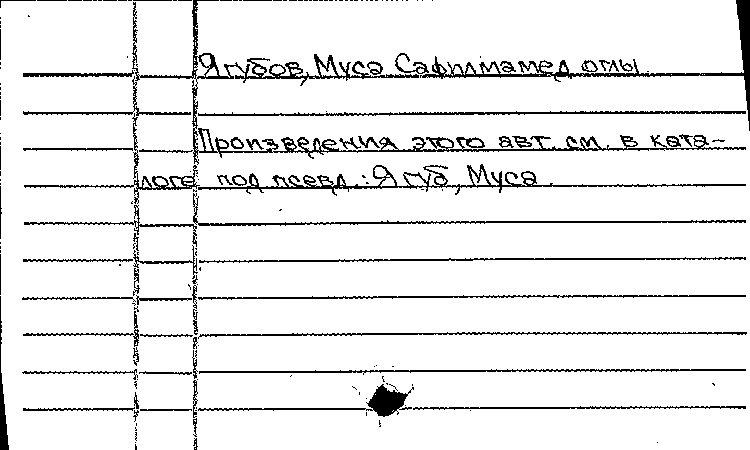 Ягубов, Муса Сафилмамед оглы
Произведения этого авт. см. в ката-
логе под псевд.: Ягуб, Муса.